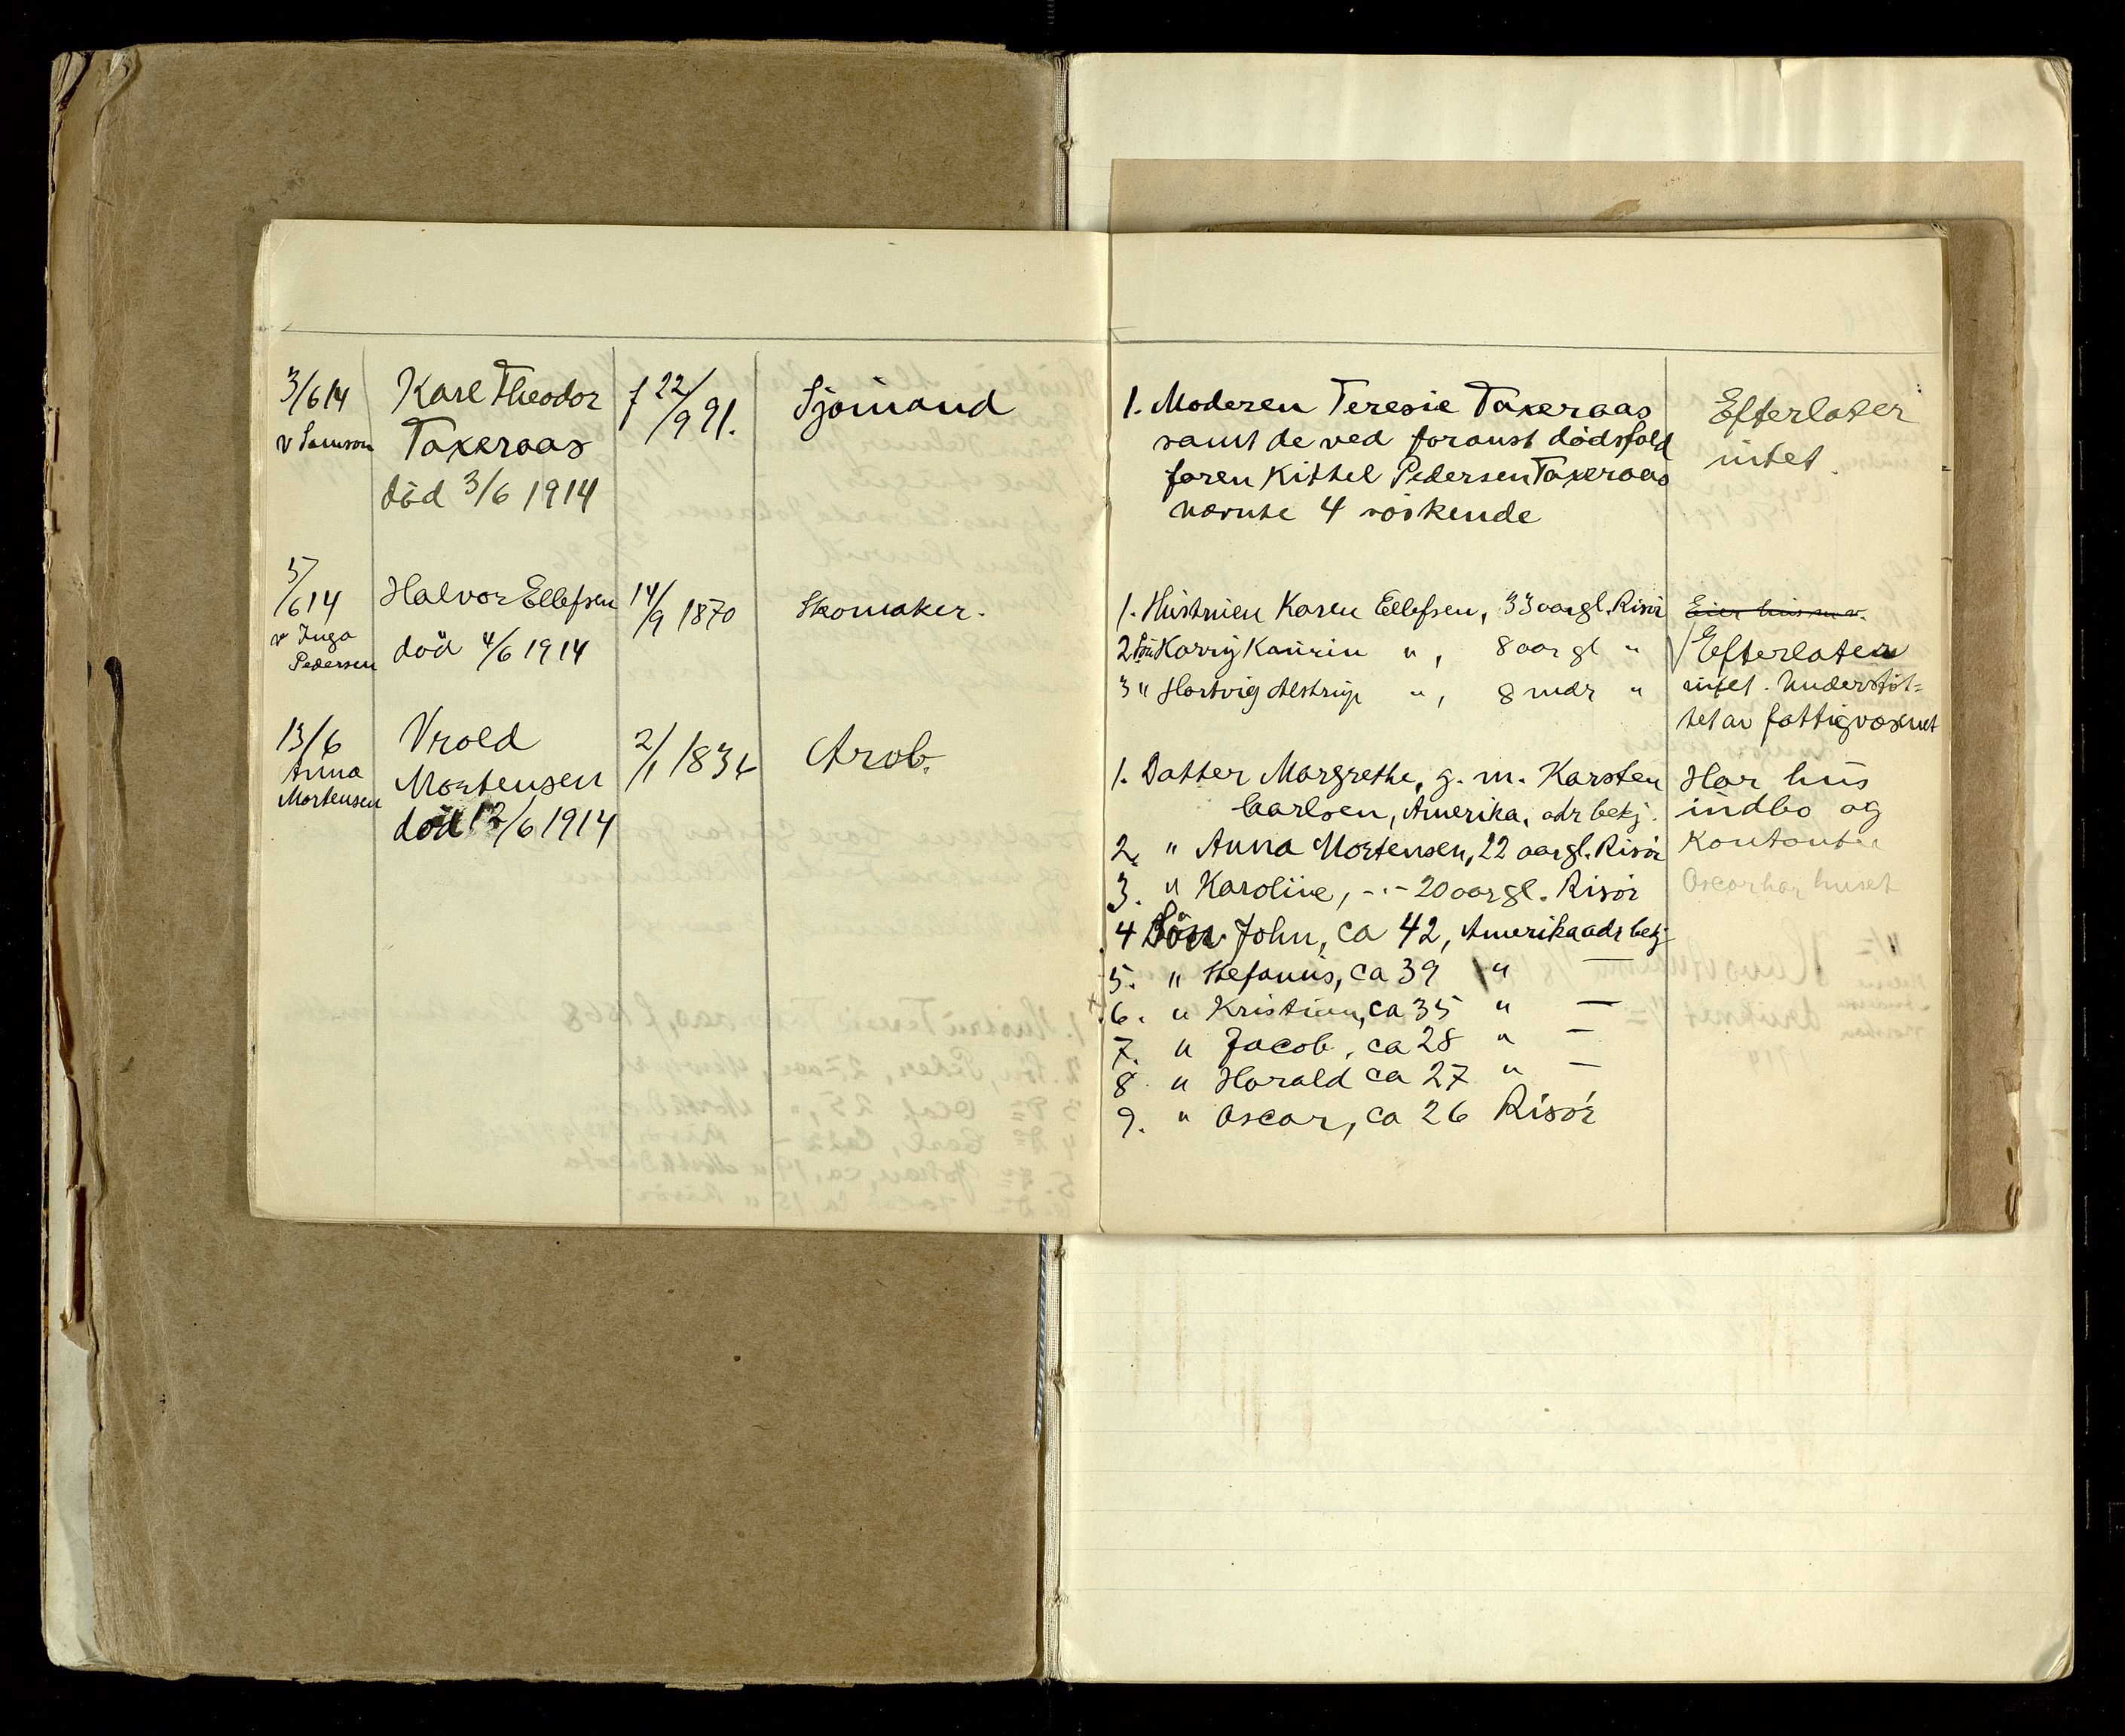 3/6 14
v Samson
Karl Theodor
Takeraas
död 3/6 1914
f 22/9 91.
Sjömand
1. Moderen Teresie Takeraas
samt de ved foranst dödsfald
faren Kittel Pedersen Takeraas
nævnte 4 söskende
Efterlater
intet.
5/6 14
v Inga
Pedersen
Halvor Ellefsen
död 4/6 1914
14/9 1870
Skomaker.
1. Hustruen Karen Ellefsen, 33 aar gl. Risör
2 Sön Harry Kaurin " , 8 aar gl "
3 " Hartvig Alstrup " , 8 mdr "
Eier hus m.v.
Efterlater
intet. Understöt-
tet av fattigvæsnet
13/6
Anna
Mortensen
Vrold
Mortensen
död 12/6 1914
2/1 1834
Arb.
1. Datter Margrethe, g. m. Karsten
Carlsen, Amerika, adr bekj.
2. " Anna Mortensen, 22 aar gl. Risör
3. " Karoline, -"- 20 aar gl. Risör
4 Sön John, ca 42, Amerika adr bekj
5. " Stefanus, ca 39 " —
6. " Kristian, ca 35 " —
7. " Jacob, ca 28 " —
8 " Harald ca 27 " —
9. " Oscar, ca 26 Risör
Har hus
indbo og
Kontanter
Oscar har huset